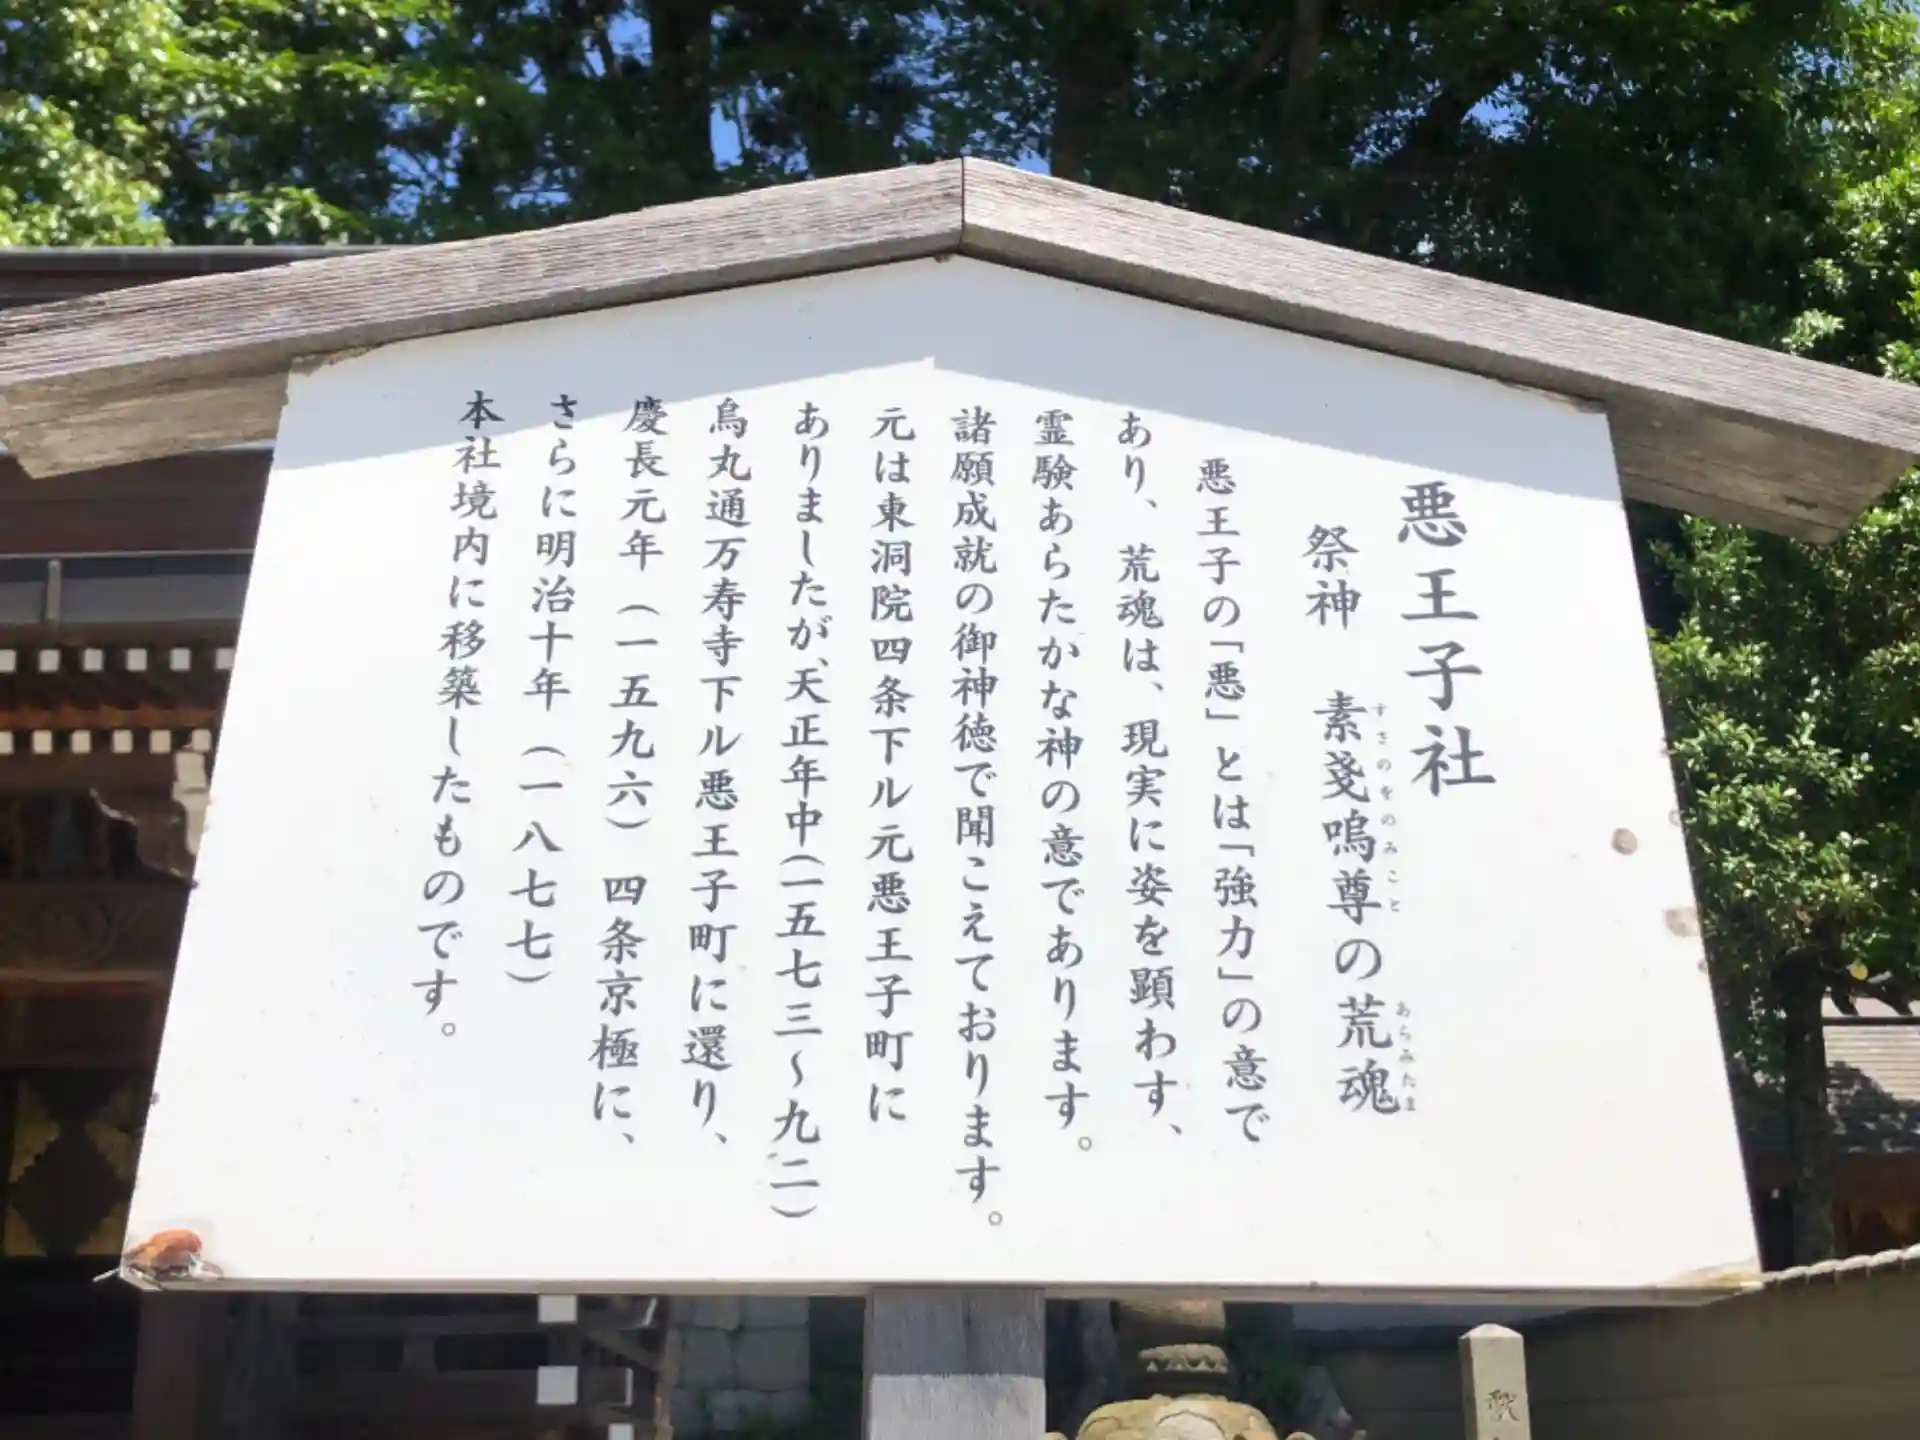 悪王子社
祭神　素戔嗚尊の荒魂
すさのをのみこと
あらみたま
悪王子の「悪」とは「強力」の意で
あり、荒魂は、現実に姿を顕わす、
霊験あらたかな神の意であります。
諸願成就の御神徳で聞こえております。
元は東洞院四条下ル元悪王子町に
ありましたが、天正年中（一五七三〜九二）
烏丸通万寿寺下ル悪王子町に還り、
慶長元年（一五九六）四条京極に、
さらに明治十年（一八七七）
本社境内に移築したものです。